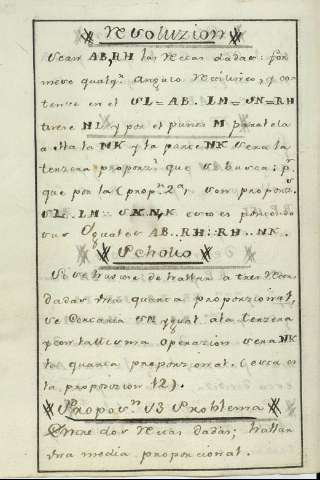 Resoluzion
Sean AB, RH las rectas dadas: for
mese qualqr. angulo rectilineo, y co
tense en el SL=AB. LM=SN=RH
tirese NL y por el punto M paralela
a ella la MK y la parte NK sera la
tercera proporzl. que se busca: pr.
que por la (propn. 2a.) son proporzs.
SL.. LM:: SN, NK esto es poniendo
sus Yguales AB.. RH:: RH.. NK.
Scholio
Si se hubiere de hallar a tres rectas
dadas una quarta proporzional,
se cortaria SN ygual a la tercera
y con la misma operazion sera NK
la quarta proporzional. (esta es
la proposizion 12).
Propon. 13 Problema
Entre dos rectas dadas; hallar
una media proporcional.